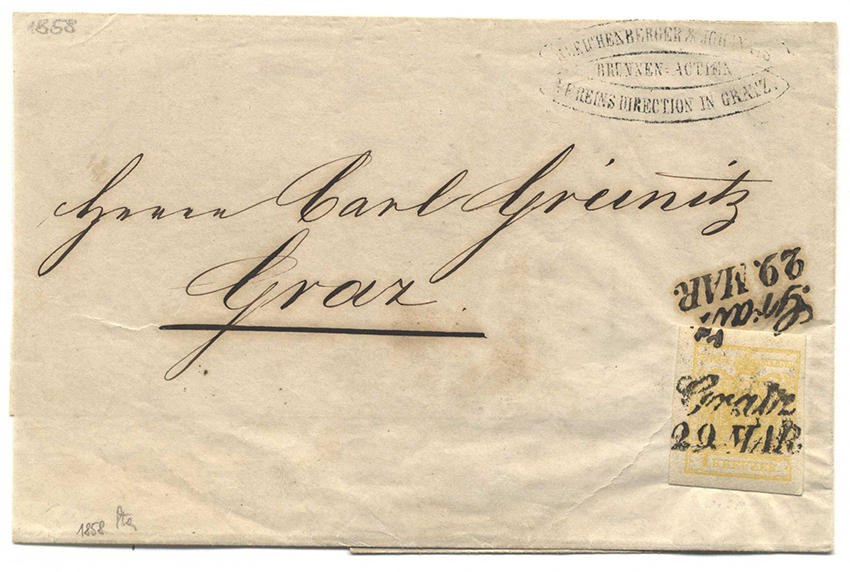 1858
BRUNNEN-ACTIEN
VEREINS DIRECTION IN GRATZ.
Herrn Carl Greinitz
Graz.
Gratz
29. MAR.
Gratz
29 MAR.
KREUZER
1858